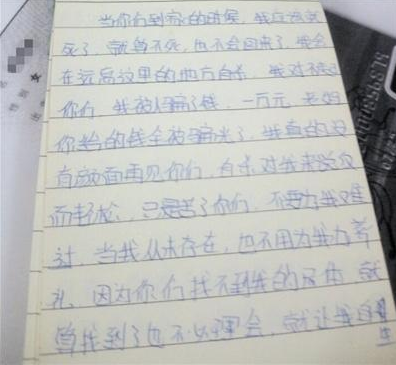 当你们到家的时候，我应该说
死了，就算不死，也不会回来了，我会
在远离这里的地方自杀，我对不起
你们，我被人骗了钱，一万元，老妈
你给的钱全被骗光了，我真的没
有颜面再见你们，自杀对我来说反
而轻松，只是苦了你们，不要为我难
过，当我从未存在，也不用为我办葬
礼，因为你们找不到我的尸体，就
算找到了也不必理会，就让我自生